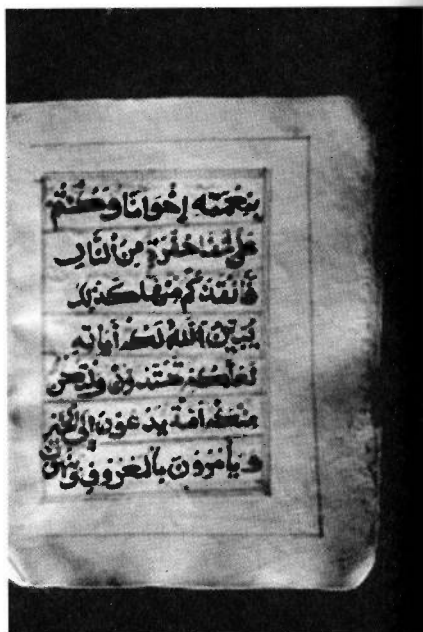 بِنِعْمَتِهِ إِخْوَانًا وَكُنْتُمْ
عَلَى شَفَا حُفْرَةٍ مِنَ النَّارِ
فَأَنْقَذَكُمْ مِنْهَا كَذَلِكَ
يُبَيِّنُ اللَّهُ لَكُمْ أَيَاتِهِ
لَعَلَّكُمْ تَهْتَدُونَ وَلْتَكُنْ
مِنْكُمْ أُمَّةٌ يَدْعُونَ إِلَى الْخَيْرِ
وَيَأْمُرُونَ بِالْمَعْرُوفِ وَيَنْهَوْنَ